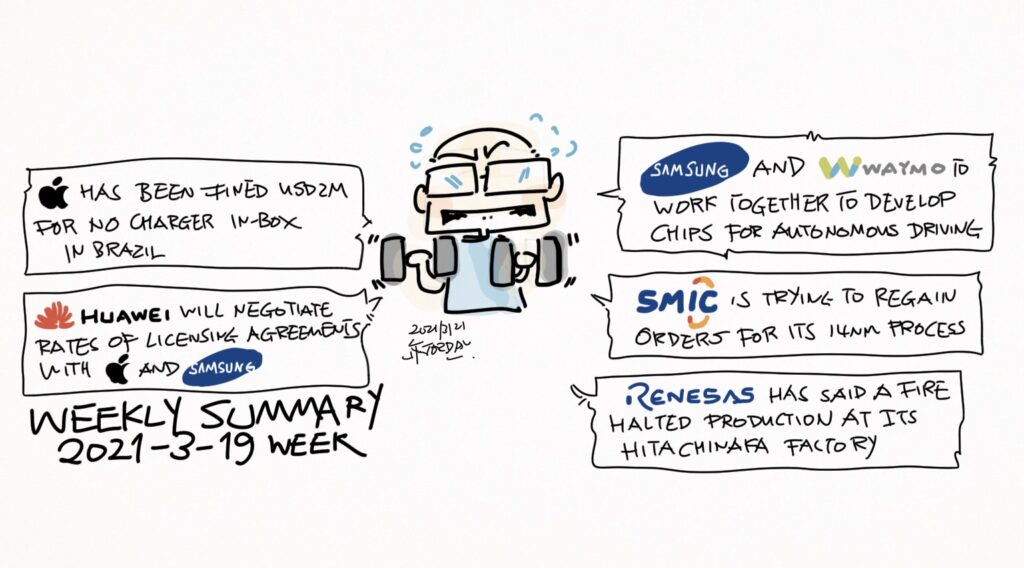 HAS BEEN FINED USD2M
FOR NO CHARGER IN-BOX
IN BRAZIL
HUAWEI WILL NEGOTIATE
RATES OF LICENSING AGREEMENTS
WITH AND SAMSUNG
WEEKLY SUMMARY
2021-3-19 WEEK
SAMSUNG AND WAYMO TO
WORK TOGETHER TO DEVELOP
CHIPS FOR AUTONOMOUS DRIVING
SMIC IS TRYING TO REGAIN
ORDERS FOR ITS 14NM PROCESS
RENESAS HAS SAID A FIRE
HALTED PRODUCTION AT ITS
HITACHINAFA FACTORY